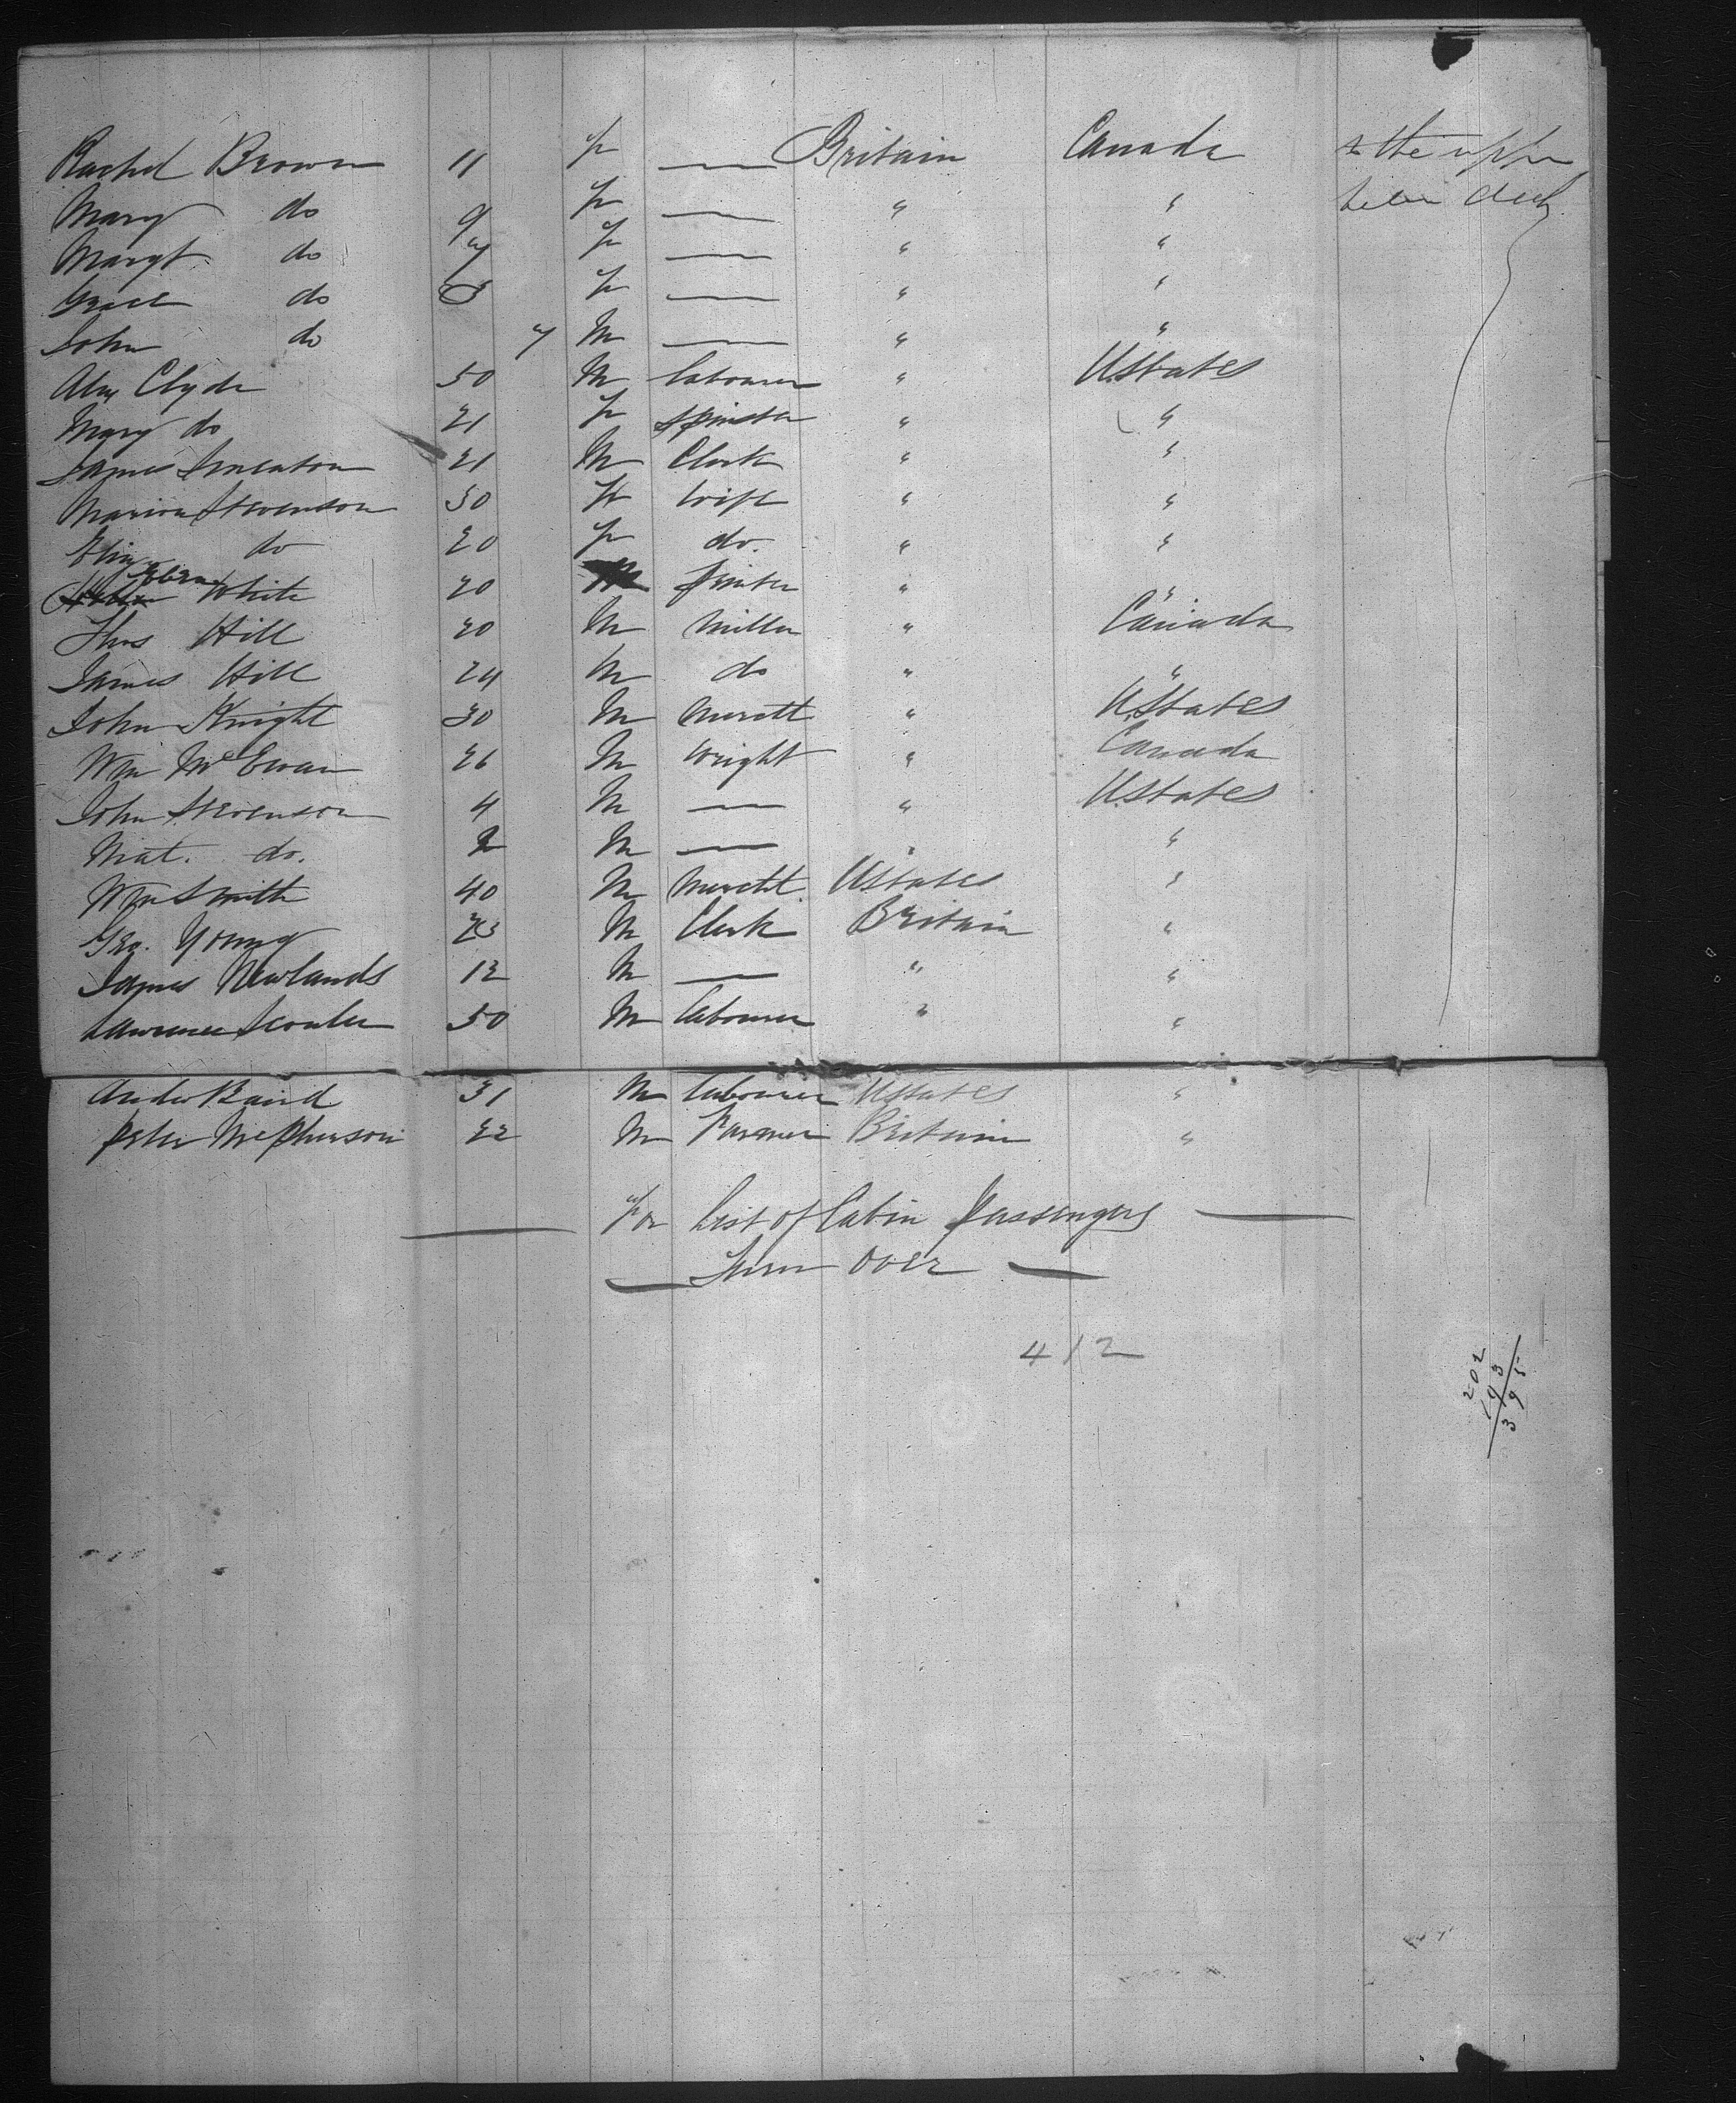 Rachel Brown 11 F — Britain Canada & the upper
Mary do 9 F — " " between deck
Margt do 7 F — " "
Grace do 5 F — " "
John do 7 M — " "
Alex Clyde 50 M Labourer " UStates
Mary do 21 F Spinster " "
James Smeaton 21 M Clerk " "
Marion Stevenson 30 F Wife " "
Eliz do 20 F do. " "
Eben White 20 M " "
Thos Hill 20 M Miller " Canada
James Hill 24 M do " "
John Knight 30 M Mercht " UStates
Wm McEwan 26 M Wright " Canada
John Stevenson 4 M — " UStates
Mat. do. 2 M — " "
Wm Smith 40 M Mercht. UStates "
Geo. Young 23 M Clerk Britain "
James Newlands 12 M — " "
Lawrence Scouler 50 M Labourer " "
Andw Baird 31 M Labourer UStates "
Peter McPherson 22 M Farmer Britain "
— For List of Cabin Passengers —
— Turn over —
412
202
193
395